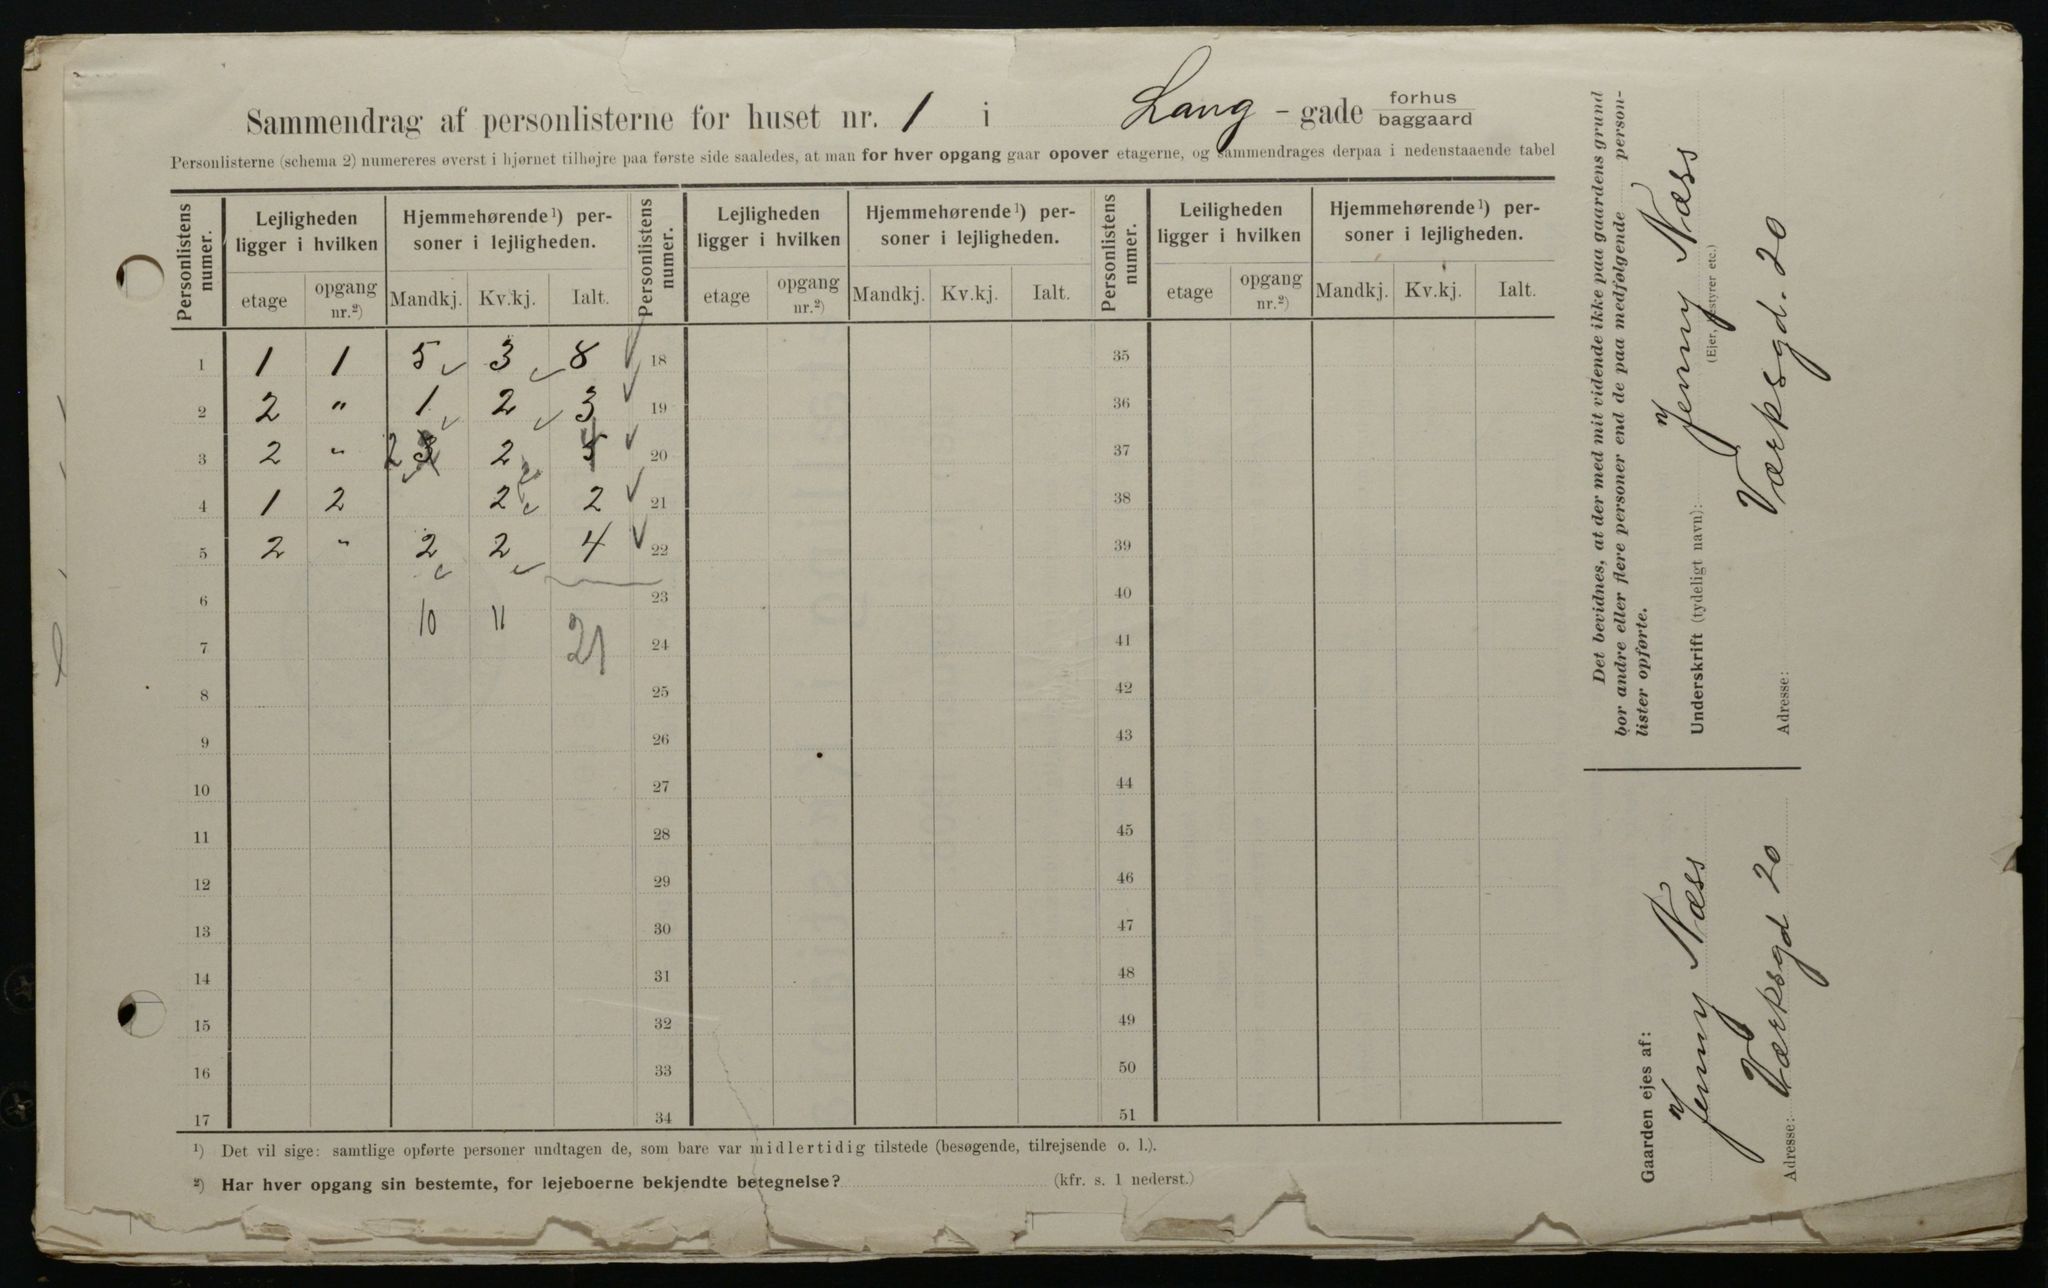 Sammendrag af personlisterne for huset nr. 1 i Lang - gade forhus baggaard
Personlisterne (schema 2) numereres øverst i hjørnet tilhøjre paa første side saaledes, at man for hver opgang gaar opover etagerne, og sammendrages derpaa i nedenstaaende tabel
Personlistens numer. Lejligheden ligger i hvilken Hjemmehørende ¹) personer i lejligheden. Personlistens numer. Lejligheden ligger i hvilken Hjemmehørende ¹) personer i lejligheden. Personlistens numer. Leiligheden ligger i hvilken Hjemmehørende ¹) personer i lejligheden.
etage opgang nr.²) Mandkj. Kv.kj. Ialt. etage opgang nr.²) Mandkj. Kv.kj. Ialt. etage opgang nr.²) Mandkj. Kv.kj. Ialt.
1 1 1 5 3 8 18 35
2 2 " 1 2 3 19 36
3 2 " 2 3 2 20 37
4 1 2 2 2 21 38
5 2 " 2 2 4 22 39
6 10 11 23 40
7 21 24 41
8 25 42
9 26 43
10 27 44
11 28 45
12 29 46
13 30 47
14 31 48
15 32 49
16 33 50
17 34 51
¹) Det vil sige: samtlige opførte personer undtagen de, som bare var midlertidig tilstede (besøgende, tilrejsende o. l.).
²) Har hver opgang sin bestemte, for lejeboerne bekjendte betegnelse? (kfr. s. 1 nederst.)
Det bevidnes, at der med mit vidende ikke paa gaardens grund
bor andre eller flere personer end de paa medfølgende personlister opførte.
Underskrift (tydeligt navn): Jenny Næss
(Ejer, bestyrer etc.)
Adresse: Værksgd. 20
Gaarden ejes af: Jenny Næss
Adresse: Værksgd 20